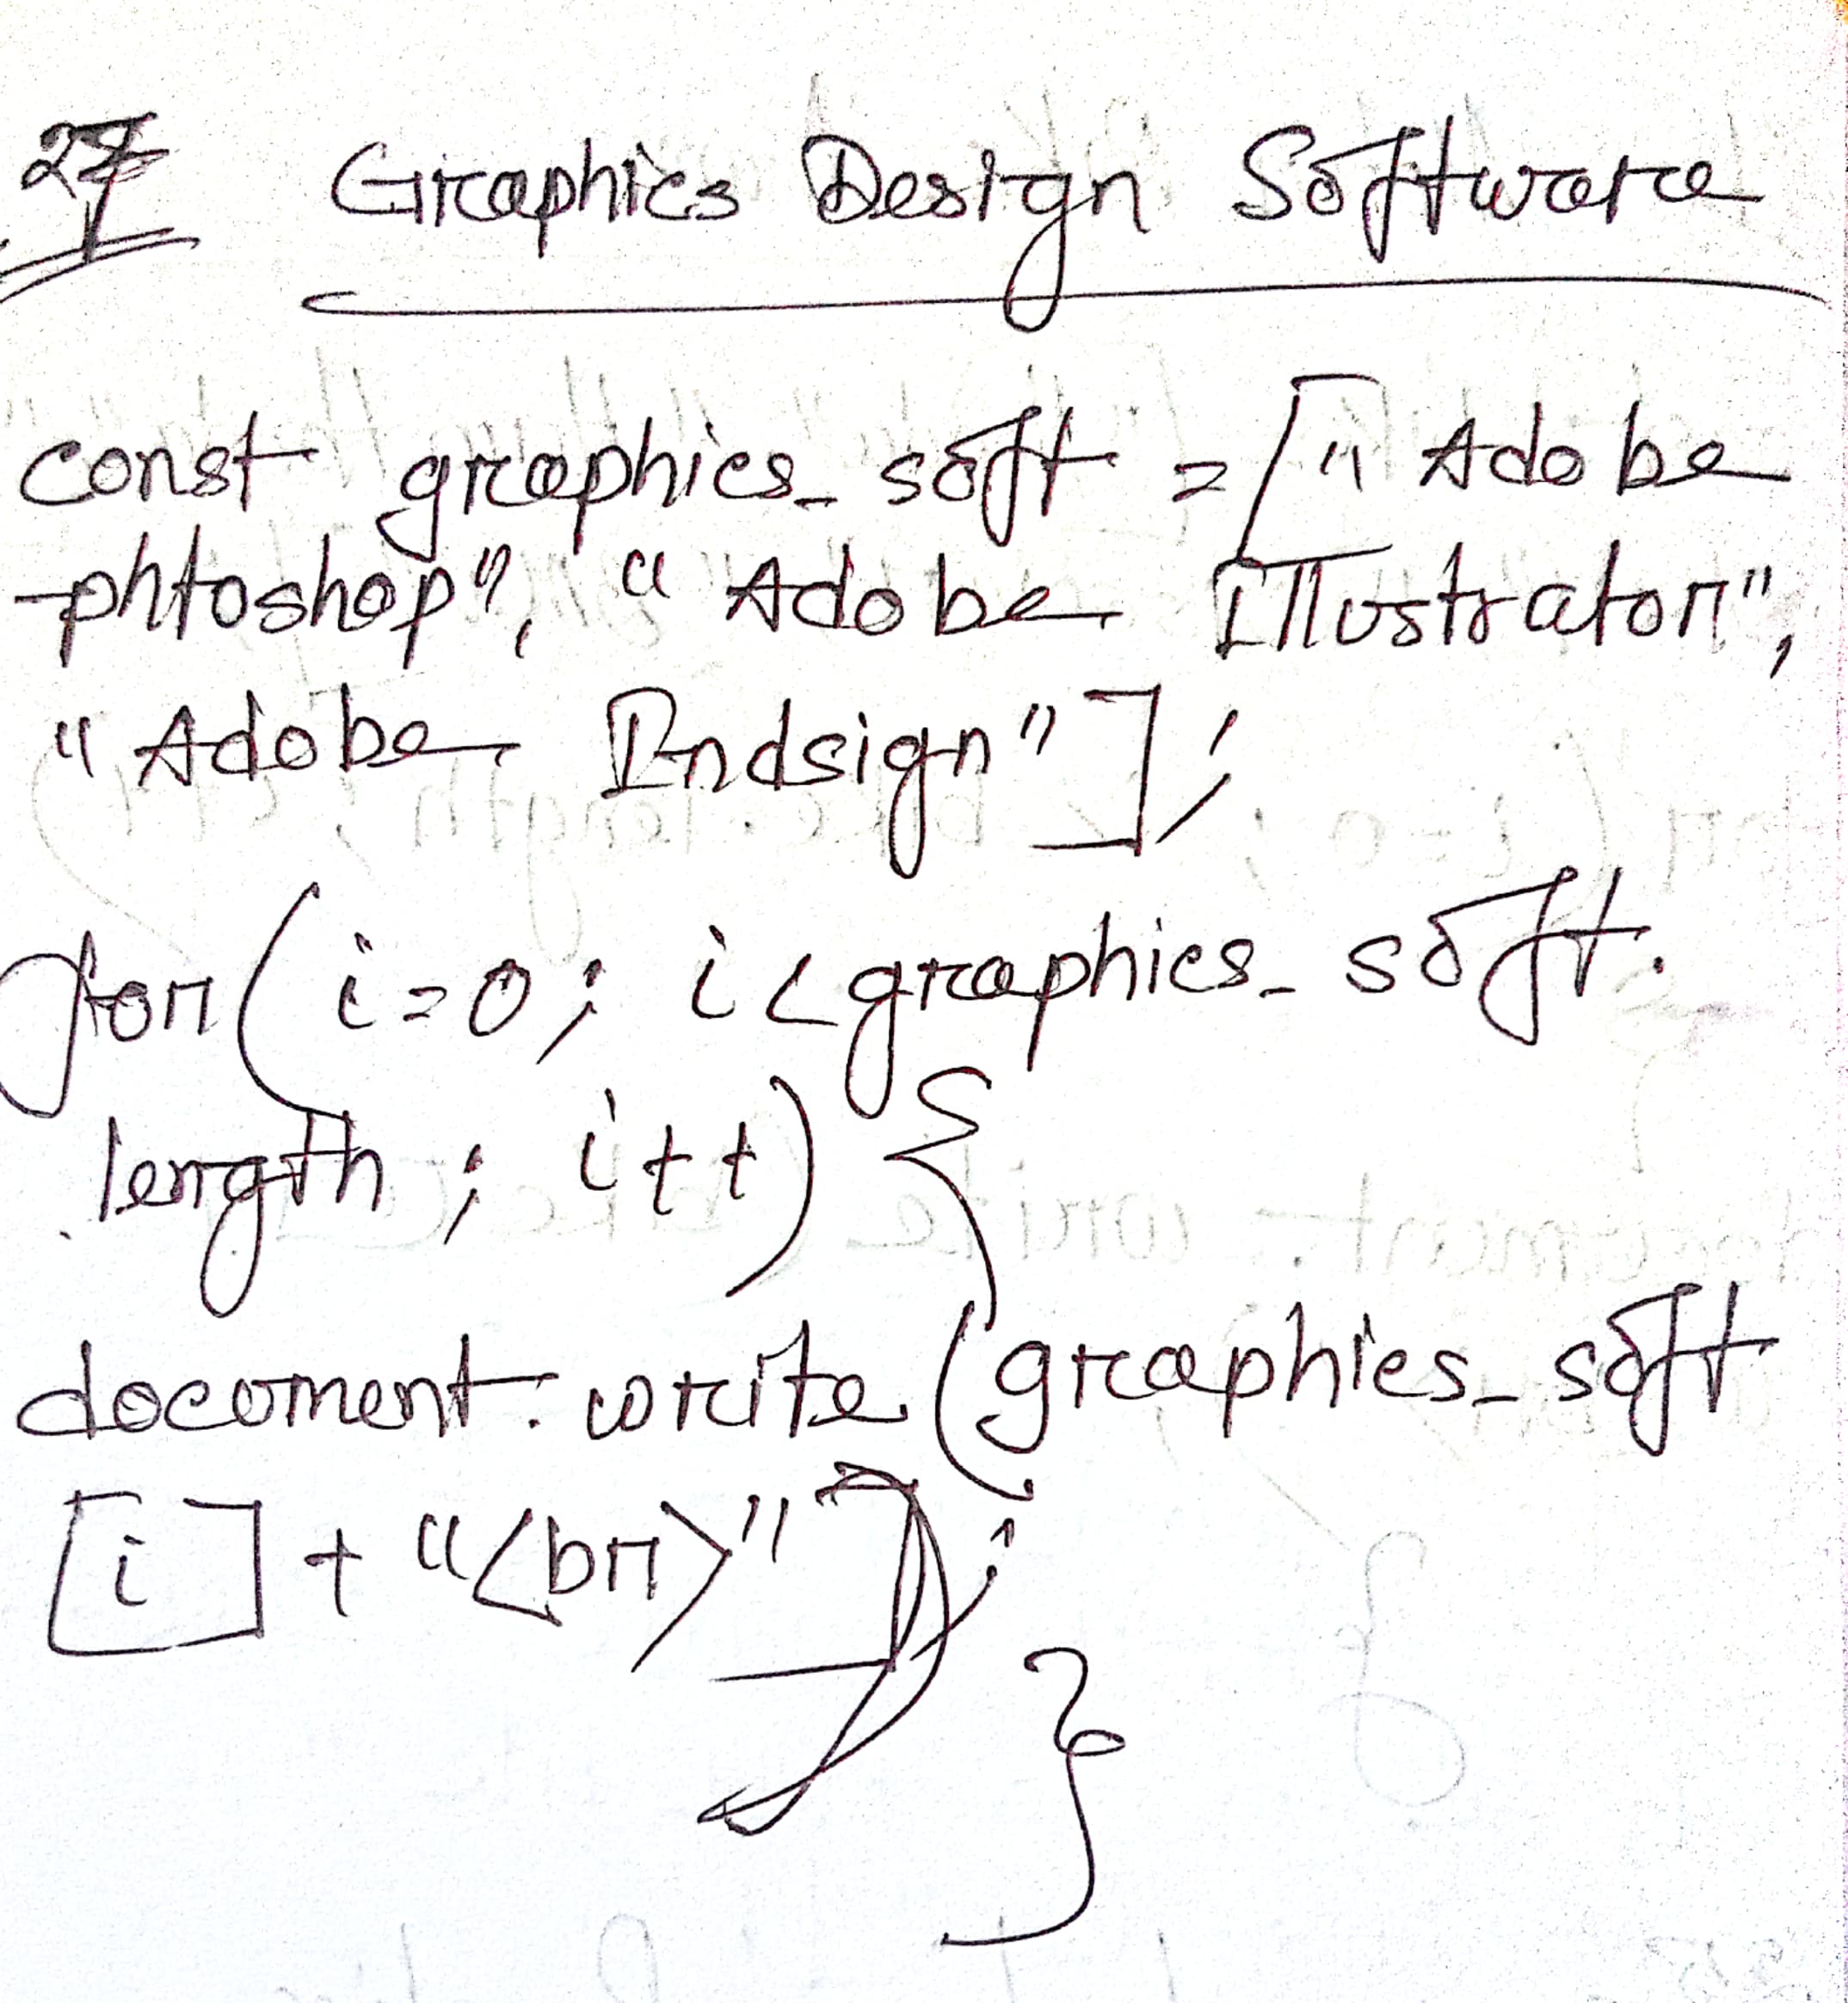 Graphics Design Software
const graphics_soft = ["Adobe
phtoshop", "Adobe Illustrator",
"Adobe Indsign"];
for (i=0; i<graphics_soft.
length; i++) {
document.write(graphics_soft
[i] + "<br>");
}